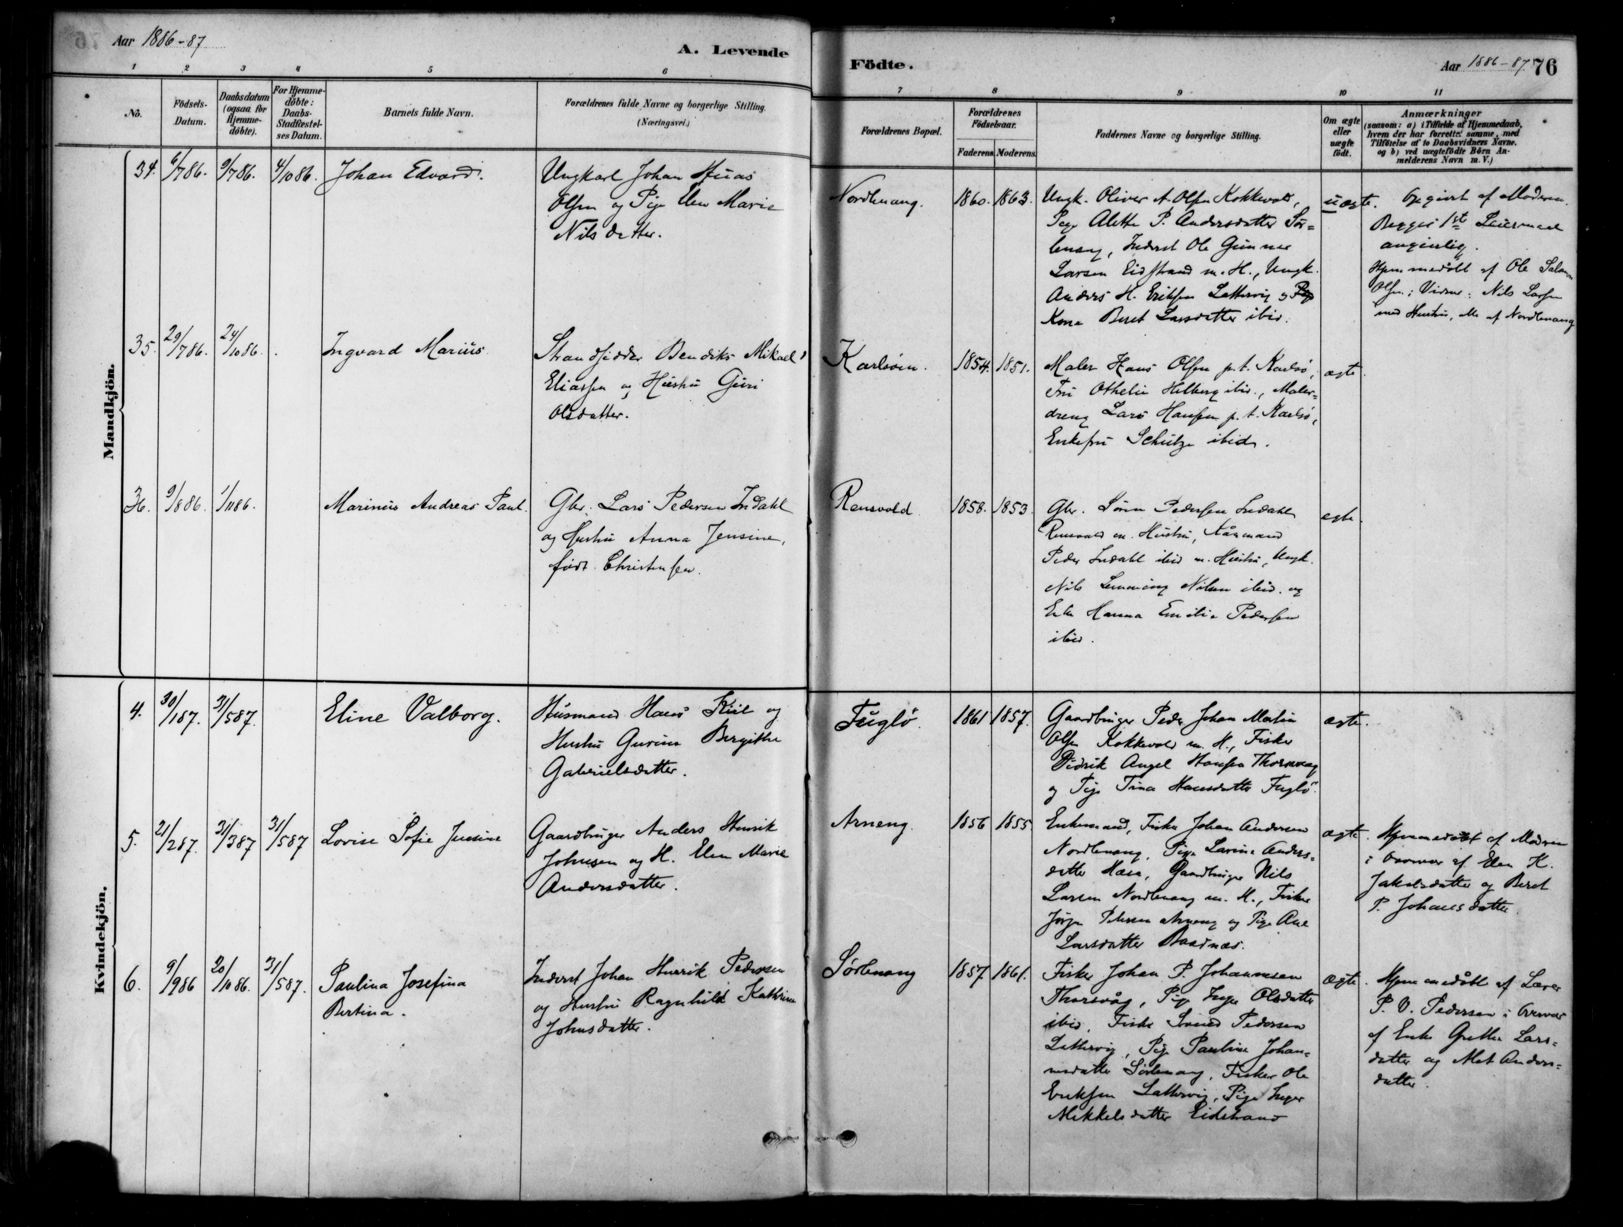 Aar 1886-87
A. Levende
Födte.
Aar 1886-87 76
1 2 3 4 5 6 7 8 9 10 11
No.
Födsels-
Datum.
Daabsdatum
(ogsaa för
Hjemme-
döbte).
For Hjemme-
döbte:
Daabs-
Stadfæstel-
ses Datum.
Barnets fulde Navn.
Forældrenes fulde Navne og borgerlige Stilling.
(Næringsvei.)
Forældrenes Bopæl.
Forældrenes
Födselsaar.
Faderens Moderens.
Faddernes Navne og borgerlige Stilling.
Om ægte
eller
uægte
födt.
Anmærkninger
(saasom: a) i Tilfælde af Hjemmedaab,
hvem der har forrettet samme, med
Tilföielse af to Daabsvidners Navne,
og b) ved uægtefödte Börn An-
melderens Navn m. V.)
Mandkjön.
34. 6/786. 9/786. 4/1086. Johan Edvard.
Ungkarl Johan
Olsen og Pige Marie
Nilsdatter.
Nordlenang. 1860. 1863.
Ungk. Oliver A. Olsen Kokkevold,
Pige Alette P. Andersdatter Sör=
lenang, Inderst Ole Gunner
Larsen Eidstrand m. H., Ungk.
Anders H. Eriksen Lattervig og
Kone Beret Larsdatter ibid.
uægte.
Opgivet af Moderen.
Begges 1ste Leiermaal
angivelig.
Hjemmedöbt af Ole
Olsen; Vidner: Nils Larsen
med Hustru, Alle af Nordlenang
35. 29/786. 24/1086. Ingvard Marius
Strandsidder Bendiks Mikael
Eliassen og Hustru Guri
Olsdatter.
Karlsöen. 1854. 1851.
Maler Hans Olsen p.t. Karlsö,
Fru Othelie Helberg ibid., Maler=
dreng Lars Hansen p.t. Karlsö,
Enkefru Schultze ibid.
ægte.
36. 9/886. 1/1186. Marinus Andreas Paul.
Gbr. Lars Pedersen Indahl
og Hustru Anna Jensine,
född Christensen.
Rensvold 1858. 1853.
Gbr. Sören Pedersen Indahl
Rensvold m. Hustru, Kaarmand
Peder Indahl ibid m. Hustru, Ungk.
Nils Lemming Nilsen ibid. og
Enke Hanna Emilie Pedersen
ibid.
ægte.
Kvindekjön.
4. 30/187. 31/587. Eline Valborg.
Husmand Hans Kiil og
Hustru Gurine Bergithe
Gabrielsdatter.
Fuglö. 1861 1857.
Gaardbruger Peder Johan Martin
Olsen Kokkevold m. H., Fisker
Didrik Angel Hansen Thorsvaag
og Pige Trina Hansdatter Fuglö.
ægte.
5. 21/287. 31/387 31/587 Lovise Sofie Jensine
Gaardbruger Anders Henrik
Johnsen og H. Elen Marie
Andersdatter.
Arneng. 1856 1855
Enkemand, Fisker Johan Andersen
Nordlenang, Pige Lavine Anders=
datter Hæia, Gaardbruger Nils
Larsen Nordlenang m. H., Fisker
Jörgen Petersen Arneng og Pige Ane
Larsdatter Baadnæs.
ægte.
Hjemmedöbt af Moderen
i Overvær af Elen K.
Jakobsdatter og Beret
P. Johansdatter.
6. 9/986 20/1086. 31/587. Paulina Josefina
Bertina.
Inderst Johan Henrik Pedersen
og Hustru Ragnhild Kathrine
Johnsdatter.
Sörlenang 1857 1861.
Fisker Johan P. Johannesen
Thorsvåg, Pige Inger Olsdatter
ibid, Fisker Sivert Pedersen
Lattervig, Pige Pauline Johan=
nesdatter Sörlenang, Fisker Ole
Eriksen Lattervig, Pige Inger
Mikkelsdatter Eidstrand
ægte.
Hjemmedöbt af Lærer
P. O. Pedersen i Overvær
af Enke Grethe Lars=
datter og Alet Anders=
datter.